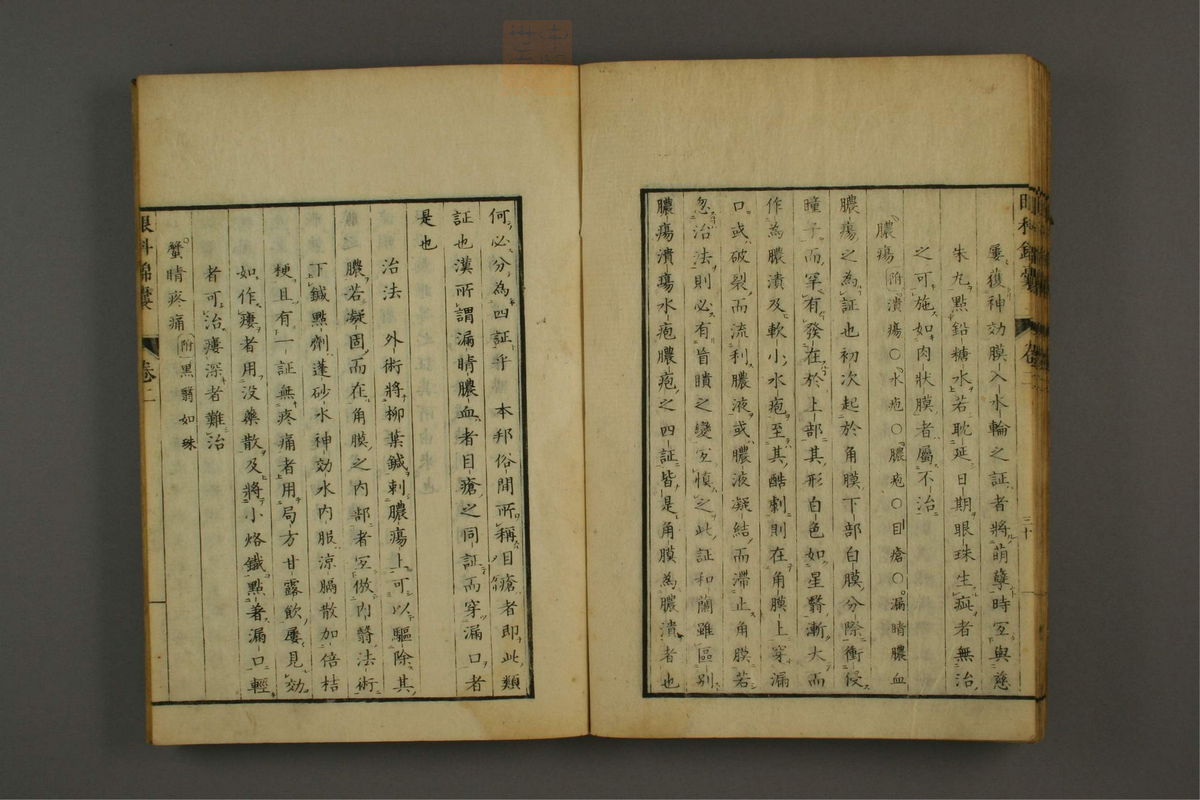 屢復神効膜入水輪之証者將萌孽時宜與慈
朱丸點鉛糖水若耽延日期眼珠生疵者無治
之可施如肉狀膜者屬不治
膿瘍 附 潰瘍〇水疱〇膿疱〇目瘡〇漏睛膿血
膿瘍之為証也初次起於角膜下部白膜分際衝侵
瞳子而罕有發在於上部其形白色如星翳漸大而
作為膿潰及軟小水疱至其酷劇則在角膜上穿漏
口或破裂而流利膿液或膿液凝結而滯止角膜若
忽治法則必有盲瞶之變宜慎之此証和蘭雖區別
膿瘍潰瘍水疱膿疱之四証皆是角膜為膿潰者也
三十
何必分為四証乎 本邦俗間所稱目瘡者即此類
証也漢所謂漏睛膿血者目瘡之同証而穿漏口者
是也
治法 外術將柳葉鍼刺膿瘍上可以驅除其
膿若凝固而在角膜之內部者宜倣內翳法術
下鍼點劑蓬砂水神効水內服涼膈散加倍桔
梗且有一証無疼痛者用局方甘露飲屢見効
如作瘻者用没藥散及將小烙鐵點著漏口輕
者可治瘻深者難治
蟹睛疼痛 附 黑翳如珠
眼科錦囊 卷二